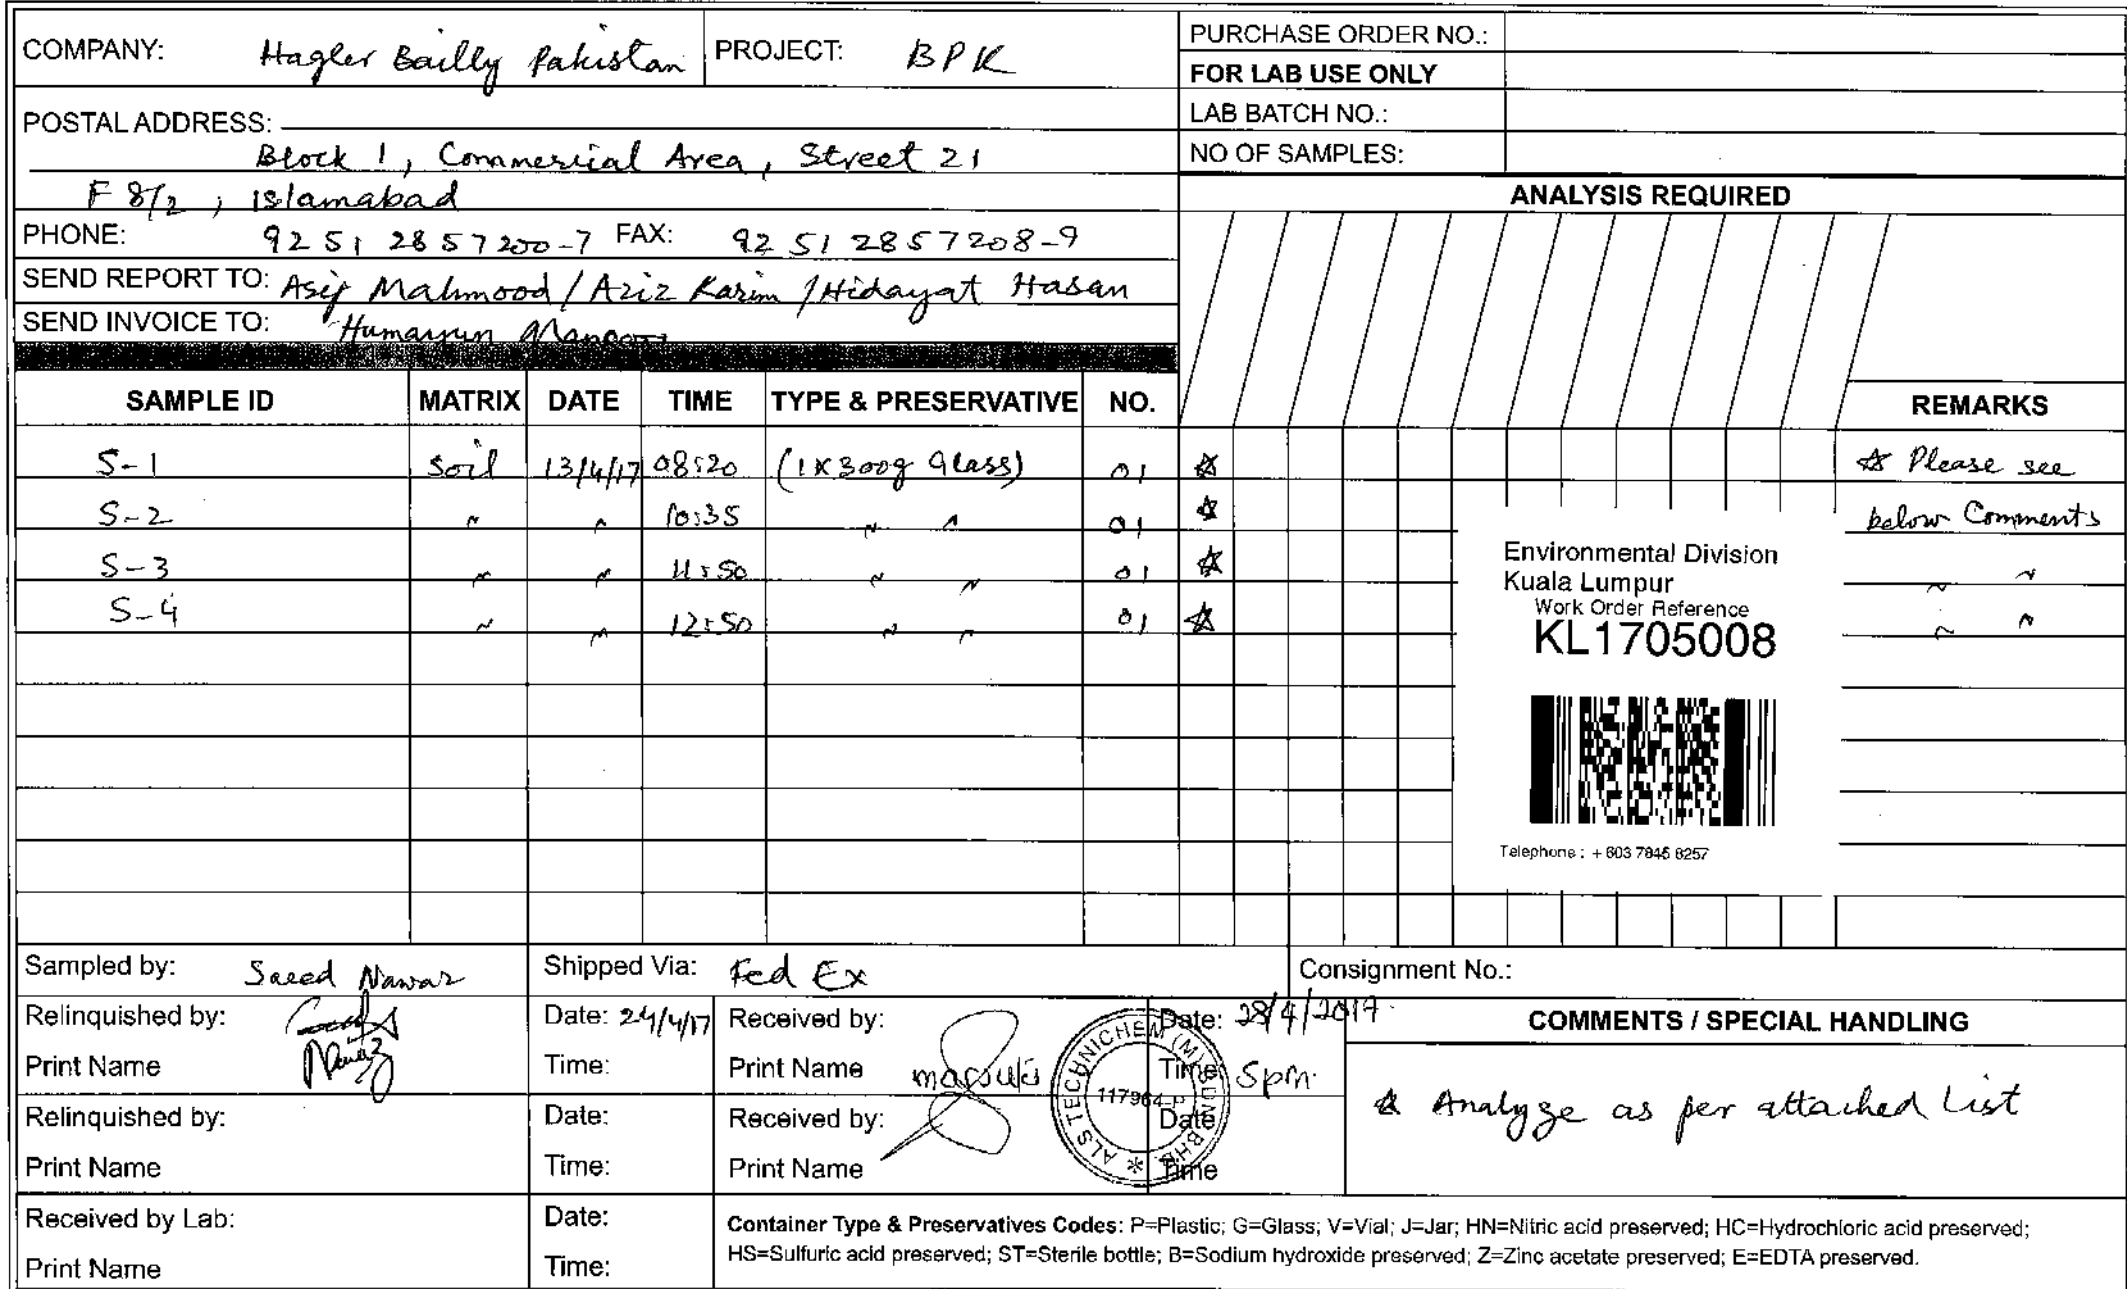 COMPANY: Hagler Bailly Pakistan PROJECT: BPK
PURCHASE ORDER NO.:
FOR LAB USE ONLY
LAB BATCH NO.:
NO OF SAMPLES:
POSTAL ADDRESS:
Block 1, Commerical Area, Street 21
F 8/2, Islamabad
PHONE: 92 51 2857200-7 FAX: 92 51 2857208-9
SEND REPORT TO: Asif Mahmood / Aziz Karim / Hidayat Hasan
SEND INVOICE TO: Humayun
ANALYSIS REQUIRED
SAMPLE ID MATRIX DATE TIME TYPE & PRESERVATIVE NO. REMARKS
S-1 Soil 13/4/17 08:20 (1x300g Glass) 01 ☆ ☆ Please see
S-2 " " 10:35 " " 01 ☆ below Comments
S-3 " " 11:50 " " 01 ☆ " "
S-4 " " 12:50 " " 01 ☆ " "
Environmental Division
Kuala Lumpur
Work Order Reference
KL1705008
Telephone : + 603 7845 8257
Sampled by: Saeed Nawaz Shipped Via: Fed Ex Consignment No.:
Relinquished by: Date: 24/4/17 Received by: Date: 28/4/2017
Print Name Nawaz Time: Print Name Time 5pm
Relinquished by: Date: Received by: Date
Print Name Time: Print Name Time
ALS TECHNICHEM (M) SDN BHD *
117964-P
COMMENTS / SPECIAL HANDLING
☆ Analyze as per attached List
Received by Lab: Date:
Print Name Time:
Container Type & Preservatives Codes: P=Plastic; G=Glass; V=Vial; J=Jar; HN=Nitric acid preserved; HC=Hydrochloric acid preserved;
HS=Sulfuric acid preserved; ST=Sterile bottle; B=Sodium hydroxide preserved; Z=Zinc acetate preserved; E=EDTA preserved.